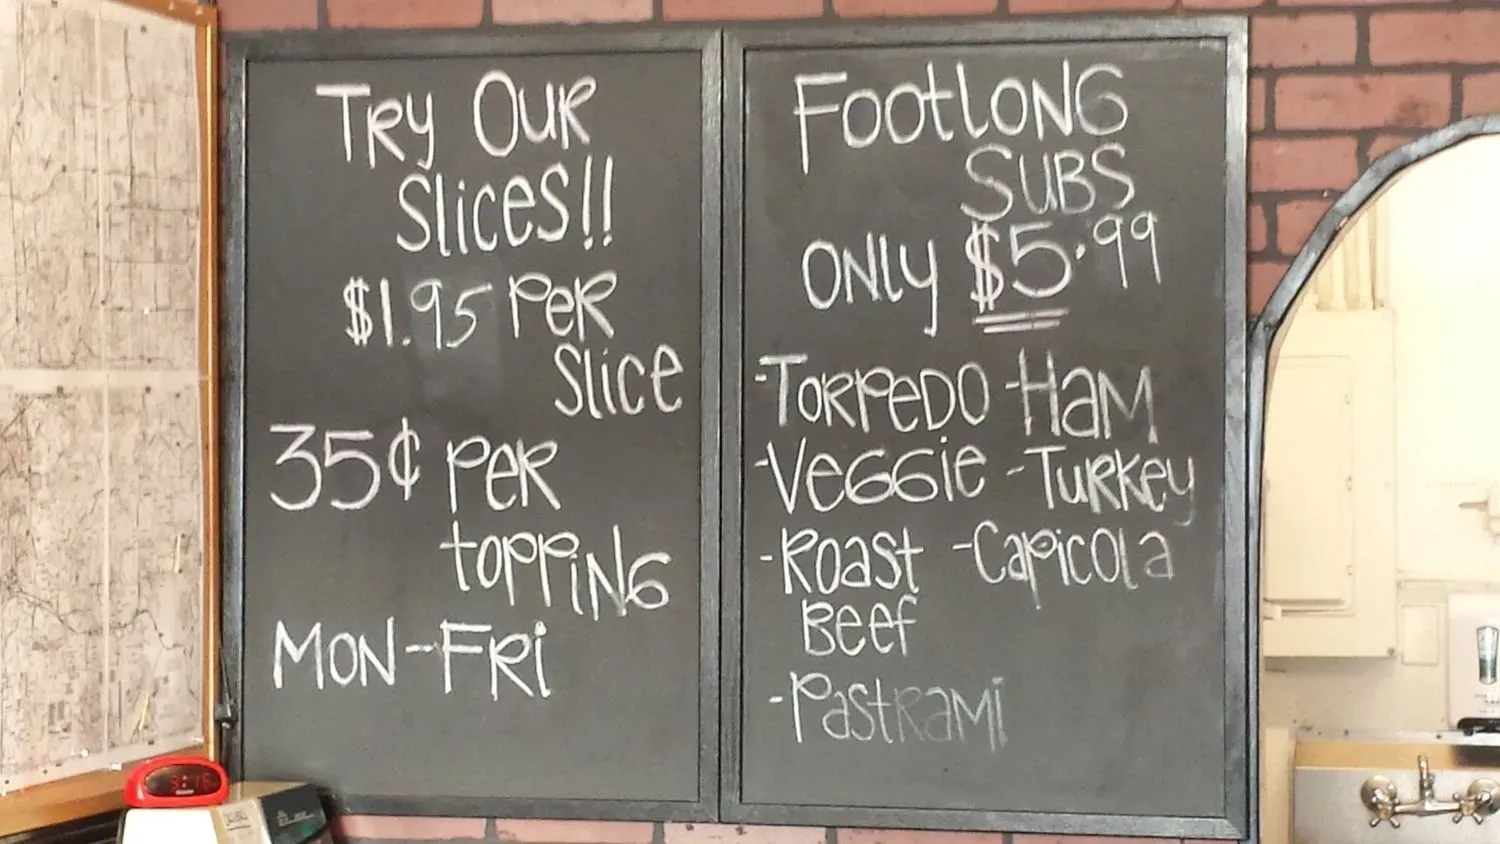 Try Our
Slices!!
$1.95 per
slice
35¢ per
topping
Mon-Fri
Footlong
Subs
only $5.99
-Torpedo -Ham
-Veggie -Turkey
-Roast -Capicola
Beef
-Pastrami